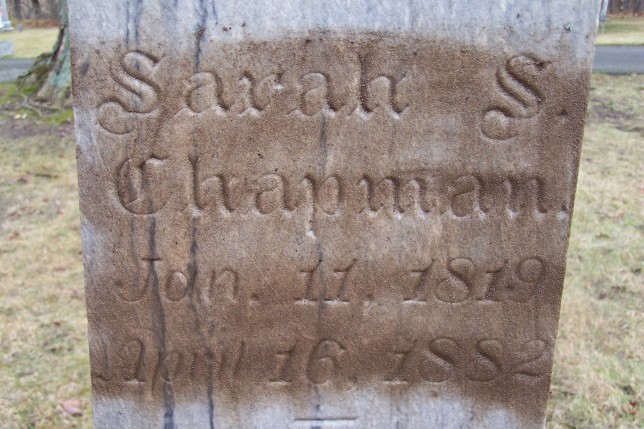 Sarah S.
Chapman.
Jan. 11, 1819
April 16, 1882